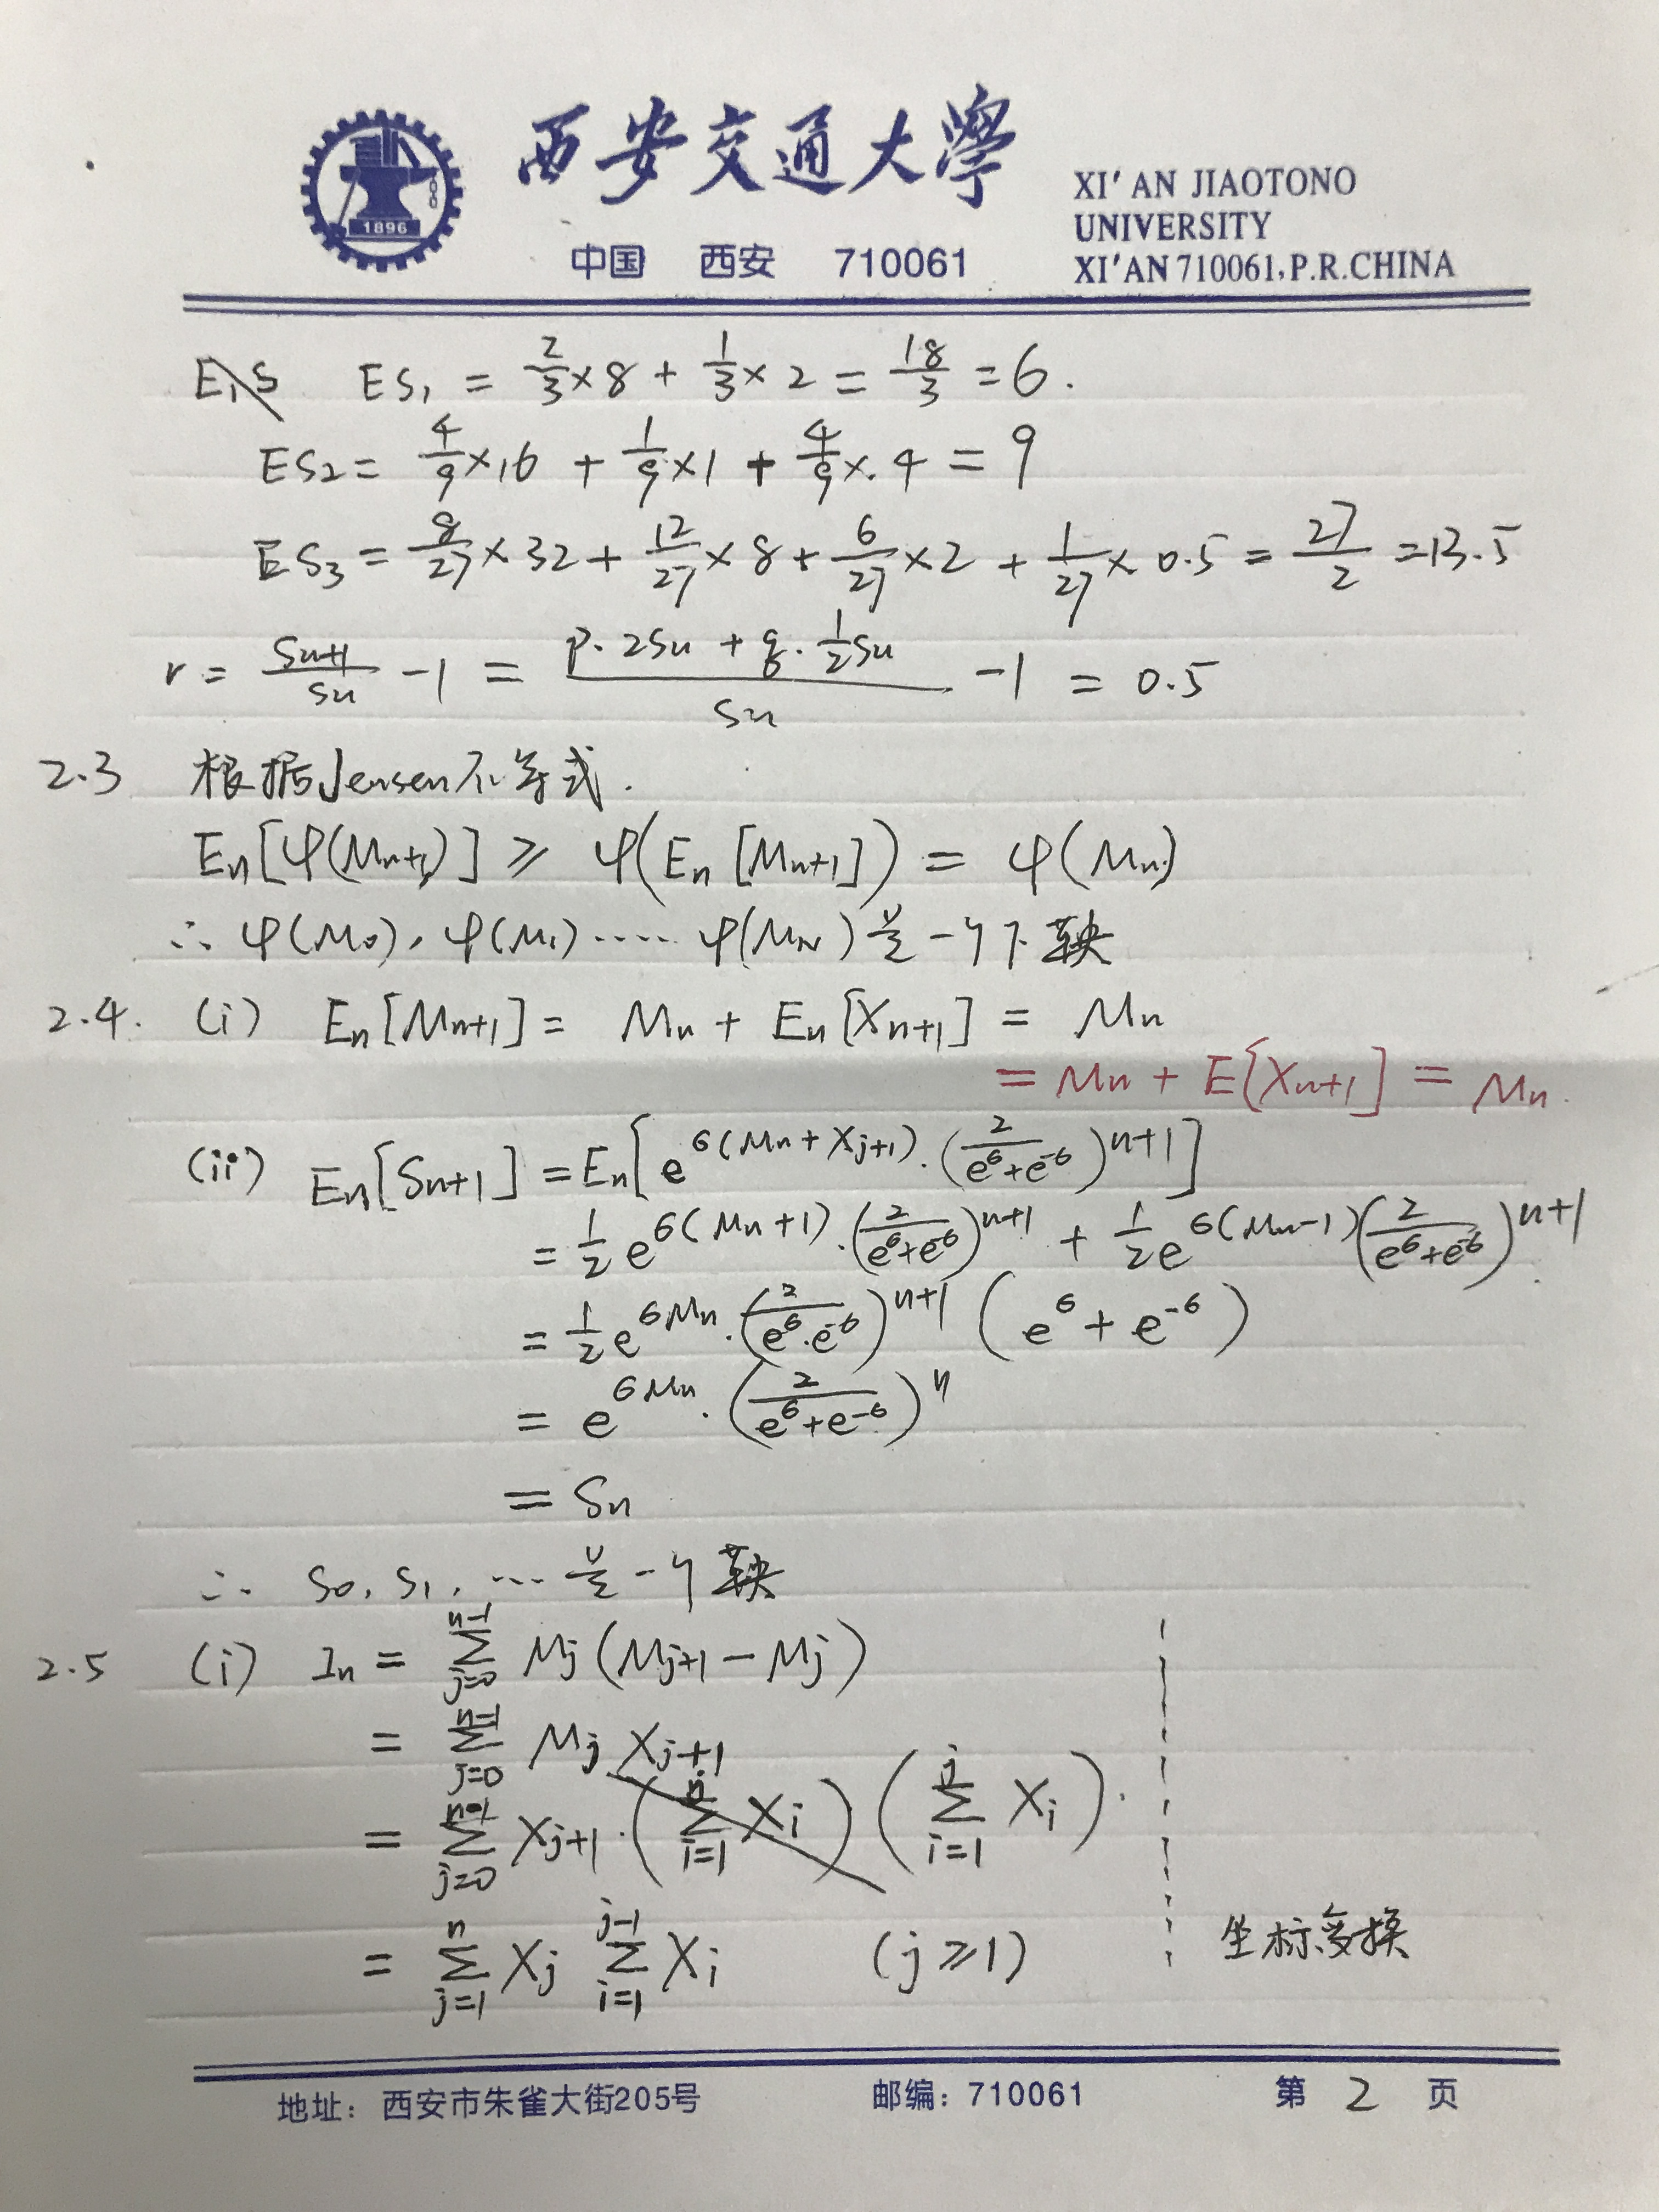 1896
西安交通大學
中国 西安 710061
XI'AN JIAOTONO
UNIVERSITY
XI'AN 710061,P.R.CHINA
E₁S ES₁ = 2/3 × 8 + 1/3 × 2 = 18/3 = 6.
ES₂ = 4/9 × 16 + 1/9 × 1 + 4/9 × 4 = 9
ES₃ = 8/27 × 32 + 12/27 × 8 + 6/27 × 2 + 1/27 × 0.5 = 27/2 = 13.5
r = Sn+1/Sn - 1 = (p·2Sn + q·1/2Sn)/Sn - 1 = 0.5
2.3 根据Jensen不等式.
En[φ(Mn+1)] ≥ φ(En[Mn+1]) = φ(Mn)
∴ φ(M₀), φ(M₁) ····· φ(MN) 是一个下鞅
2.4. (i) En[Mn+1] = Mn + En[Xn+1] = Mn
= Mn + E[Xn+1] = Mn.
(ii) En[Sn+1] = En[e^6(Mn+Xj+1)·(2/(e^6+e^-6))^n+1]
= 1/2 e^6(Mn+1)·(2/(e^6+e^-6))^n+1 + 1/2 e^6(Mn-1)(2/(e^6+e^-6))^n+1
= 1/2 e^6Mn·(2/(e^6·e^-6))^n+1 (e^6 + e^-6)
= e^6Mn·(2/(e^6+e^-6))^n
= Sn
∴ S₀, S₁, ··· 是一个鞅
2.5 (i) In = Σ_{j=0}^{n-1} Mj(Mj+1 - Mj)
= Σ_{j=0}^{n-1} Mj Xj+1
= Σ_{j=0}^{n-1} Xj+1·(Σ_{i=1}^{n} Xi) (Σ_{i=1}^{j} Xi).
= Σ_{j=1}^{n} Xj Σ_{i=1}^{j-1} Xi (j≥1) 坐标变换
地址：西安市朱雀大街205号 邮编：710061 第 2 页